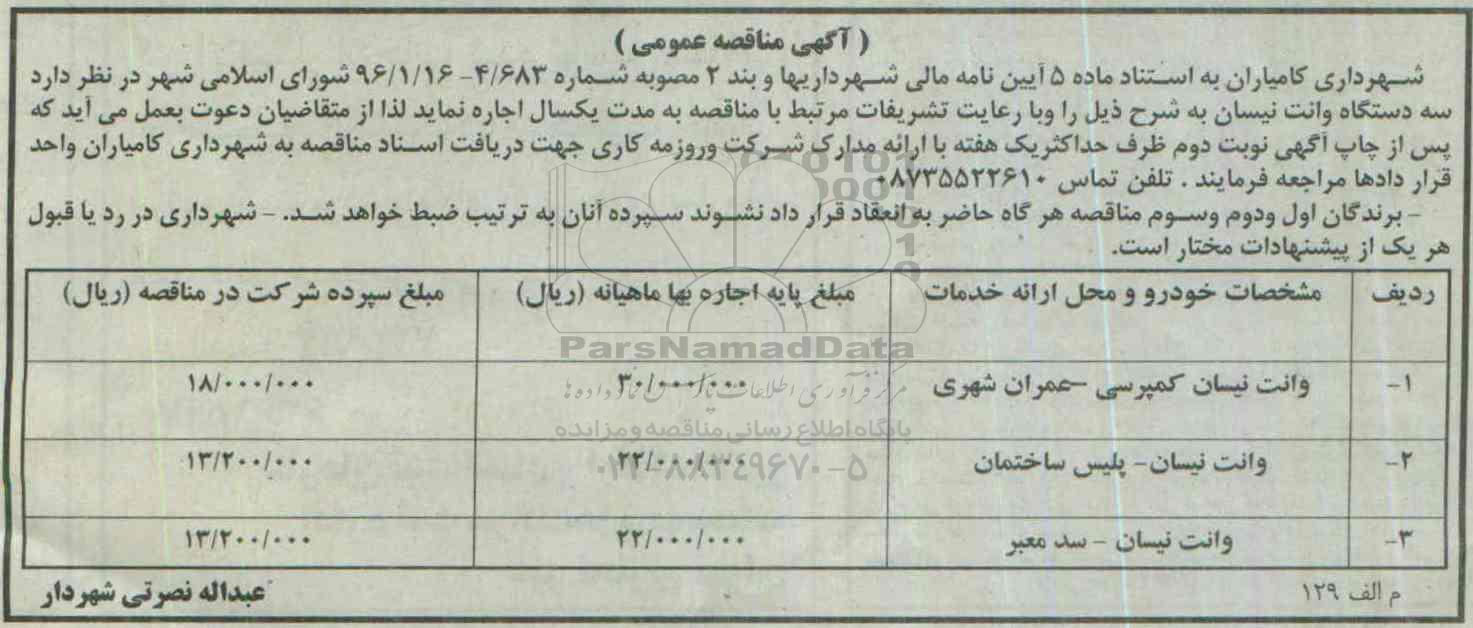 ( آگهی مناقصه عمومی )
شهرداری کامیاران به استناد ماده ۵ آیین نامه مالی شهرداریها و بند ۲ مصوبه شماره ۴/۶۸۳- ۹۶/۱/۱۶ شورای اسلامی شهر در نظر دارد
سه دستگاه وانت نیسان به شرح ذیل را وبا رعایت تشریفات مرتبط با مناقصه به مدت یکسال اجاره نماید لذا از متقاضیان دعوت بعمل می آید که
پس از چاپ آگهی نوبت دوم ظرف حداکثریک هفته با ارائه مدارک شرکت وروزمه کاری جهت دریافت اسناد مناقصه به شهرداری کامیاران واحد
قرار دادها مراجعه فرمایند . تلفن تماس ۰۸۷۳۵۵۲۲۶۱۰
- برندگان اول ودوم وسوم مناقصه هر گاه حاضر به انعقاد قرار داد نشوند سپرده آنان به ترتیب ضبط خواهد شد. - شهرداری در رد یا قبول
هر یک از پیشنهادات مختار است.
ردیف مشخصات خودرو و محل ارائه خدمات مبلغ پایه اجاره بها ماهیانه (ریال) مبلغ سپرده شرکت در مناقصه (ریال)
ParsNamadData
۱- وانت نیسان کمپرسی -عمران شهری ۳۰/۰۰۰/۰۰۰ ۱۸/۰۰۰/۰۰۰
مرکز فرآوری اطلاعات پارس نماد داده ها
پایگاه اطلاع رسانی مناقصه و مزایده
۲- وانت نیسان- پلیس ساختمان ۲۲/۰۰۰/۰۰۰ ۱۳/۲۰۰/۰۰۰
۰۲۱-۸۸۳۴۹۶۷۰-۵
۳- وانت نیسان - سد معبر ۲۲/۰۰۰/۰۰۰ ۱۳/۲۰۰/۰۰۰
م الف ۱۲۹ عبداله نصرتی شهردار